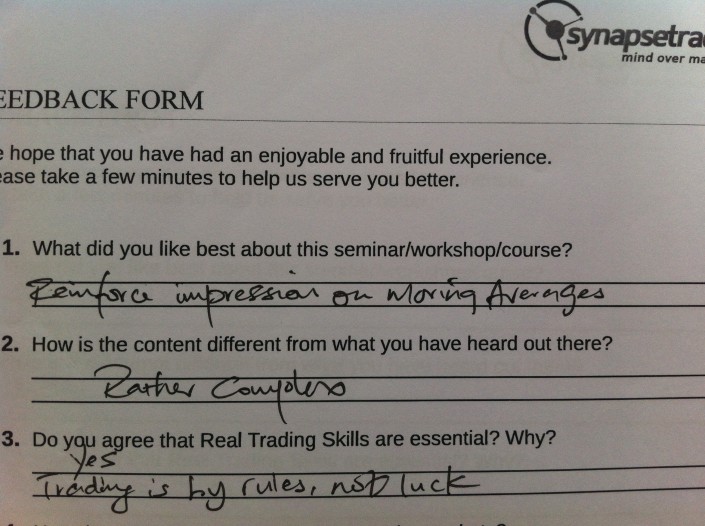 synapsetra
mind over ma
EEDBACK FORM
e hope that you have had an enjoyable and fruitful experience.
ease take a few minutes to help us serve you better.
1. What did you like best about this seminar/workshop/course?
Reinforce impression on Moving Averages
2. How is the content different from what you have heard out there?
Rather Complex
3. Do you agree that Real Trading Skills are essential? Why?
Yes
Trading is by rules, not luck